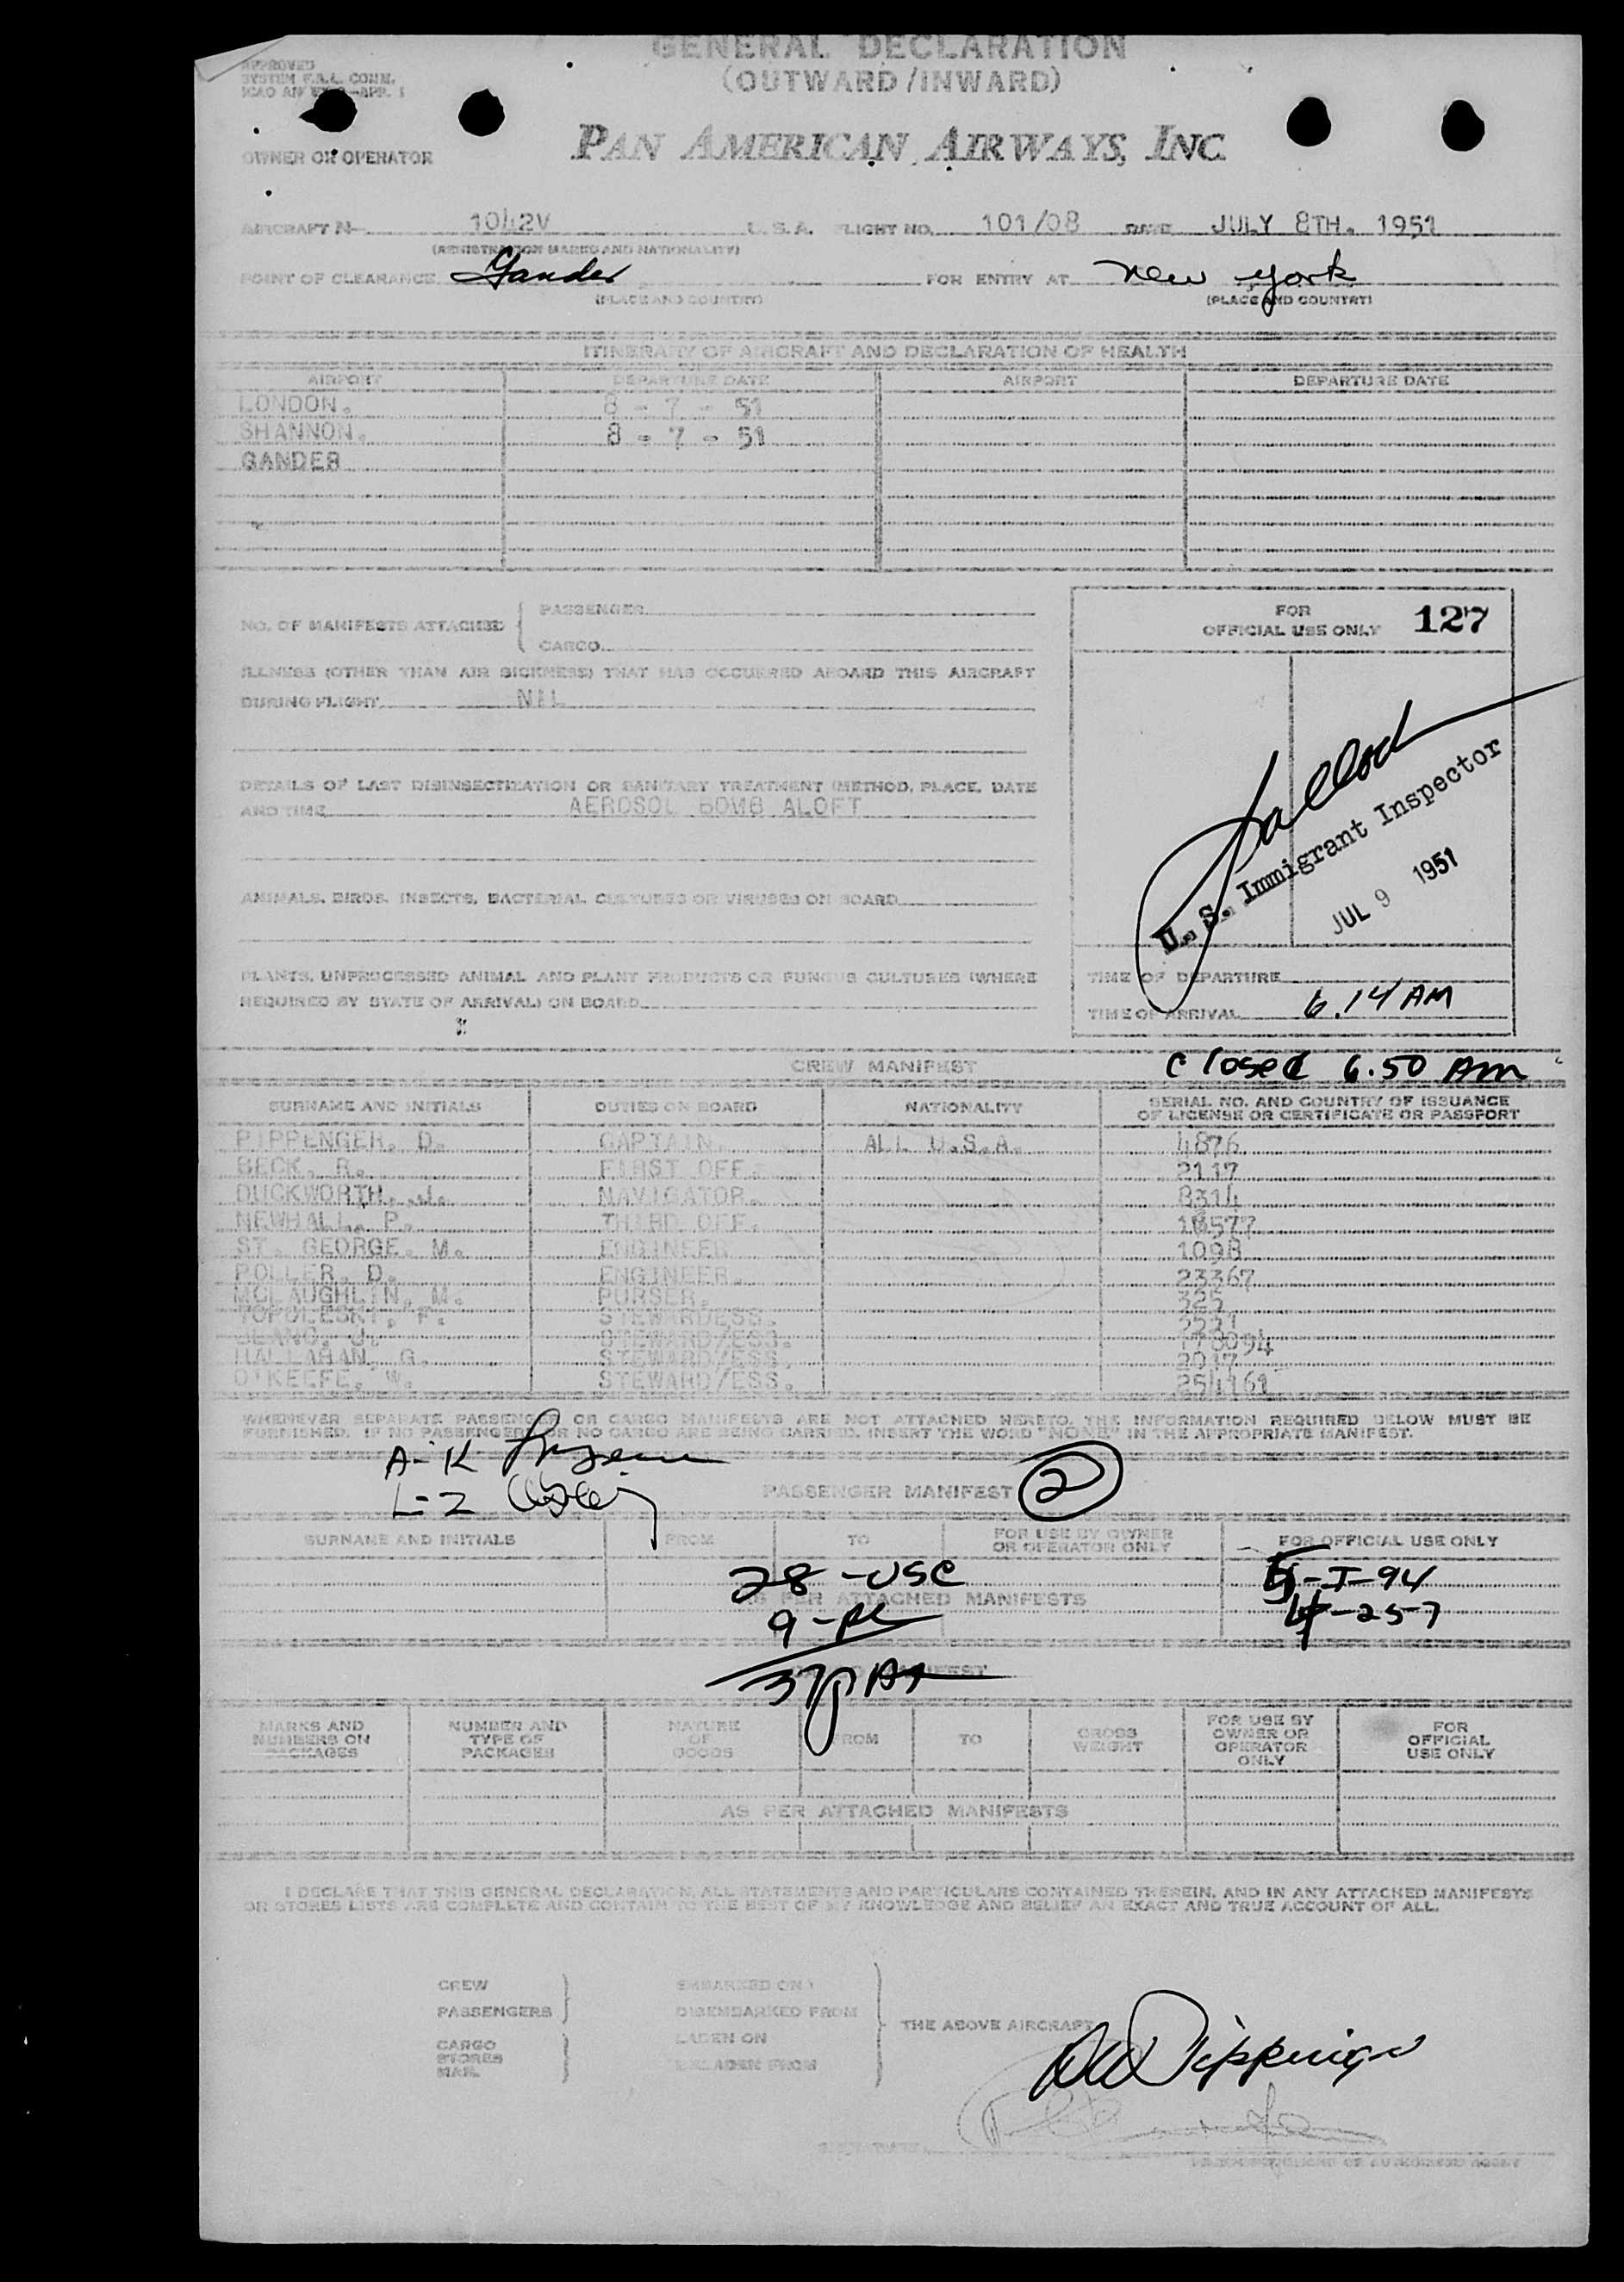 GENERAL DECLARATION
(OUTWARD/INWARD)
APPROVED
SYSTEM F.A.L. COMM.
ICAO AN -APR. 1
OWNER OR OPERATOR
PAN AMERICAN AIRWAYS, INC.
AIRCRAFT N- 1042V U. S. A. FLIGHT NO. 101/08 DATE JULY 8TH. 1951
(REGISTRATION MARKS AND NATIONALITY)
POINT OF CLEARANCE Gander FOR ENTRY AT New York
(PLACE AND COUNTRY) (PLACE AND COUNTRY)
ITINERARY OF AIRCRAFT AND DECLARATION OF HEALTH
AIRPORT DEPARTURE DATE AIRPORT DEPARTURE DATE
LONDON. 8 - 7 - 51
SHANNON. 8 - 7 - 51
GANDER
NO. OF MANIFESTS ATTACHED PASSENGER
CARGO
FOR OFFICIAL USE ONLY 127
ILLNESS (OTHER THAN AIR SICKNESS) THAT HAS OCCURRED ABOARD THIS AIRCRAFT
DURING FLIGHT NIL
DETAILS OF LAST DISINSECTIZATION OR SANITARY TREATMENT (METHOD, PLACE, DATE
AND TIME AEROSOL BOMB ALOFT
U. S. Immigrant Inspector
JUL 9 1951
ANIMALS, BIRDS, INSECTS, BACTERIAL CULTURES OR VIRUSES ON BOARD
PLANTS, UNPROCESSED ANIMAL AND PLANT PRODUCTS OR FUNGUS CULTURES (WHERE
REQUIRED BY STATE OF ARRIVAL) ON BOARD
TIME OF DEPARTURE
TIME OF ARRIVAL 6.14 AM
CREW MANIFEST closed 6.50 Am
SURNAME AND INITIALS DUTIES ON BOARD NATIONALITY SERIAL NO. AND COUNTRY OF ISSUANCE
OF LICENSE OR CERTIFICATE OR PASSPORT
PIPPENGER, D. CAPTAIN. ALL U.S.A. 4876
BECK, R. FIRST OFF. 2117
DUCKWORTH, J. NAVIGATOR. 8314
NEWHALL, P. THIRD OFF. 16577
ST. GEORGE, M. ENGINEER 1098
POLLER, D. ENGINEER. 23367
MCLAUGHLIN, M. PURSER. 325
TOPOLESKI, F. STEWARDESS.
J. STEWARD/ESS. 178094
HALLAHAN, G. STEWARD/ESS. 2017
O'KEEFE, W. STEWARD/ESS. 254161
WHENEVER SEPARATE PASSENGER OR CARGO MANIFESTS ARE NOT ATTACHED HERETO, THE INFORMATION REQUIRED BELOW MUST BE
FURNISHED. IF NO PASSENGERS OR NO CARGO ARE BEING CARRIED, INSERT THE WORD "NONE" IN THE APPROPRIATE MANIFEST.
A-K
L-Z
PASSENGER MANIFEST 2
SURNAME AND INITIALS FROM TO FOR USE BY OWNER
OR OPERATOR ONLY FOR OFFICIAL USE ONLY
28 -USC 5-I-94
AS PER ATTACHED MANIFESTS
9- 4-257
37
CARGO MANIFEST
MARKS AND
NUMBERS ON
PACKAGES NUMBER AND
TYPE OF
PACKAGES NATURE
OF
GOODS FROM TO GROSS
WEIGHT FOR USE BY
OWNER OR
OPERATOR
ONLY FOR
OFFICIAL
USE ONLY
AS PER ATTACHED MANIFESTS
I DECLARE THAT THIS GENERAL DECLARATION, ALL STATEMENTS AND PARTICULARS CONTAINED THEREIN, AND IN ANY ATTACHED MANIFESTS
OR STORES LISTS ARE COMPLETE AND CONTAIN TO THE BEST OF MY KNOWLEDGE AND BELIEF AN EXACT AND TRUE ACCOUNT OF ALL.
CREW EMBARKED ON
PASSENGERS DISEMBARKED FROM
THE ABOVE AIRCRAFT
CARGO LADEN ON
STORES
MAIL UNLADEN FROM
SIGNATURE